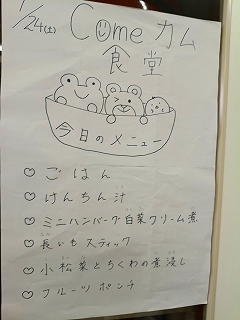 1/24(土) Come カム
食堂
今日のメニュー
♡ ごはん
♡ けんちん汁
♡ ミニハンバーグ白菜クリーム煮
♡ 長いもスティック
♡ 小松菜とちくわの煮浸し
♡ フルーツポンチ